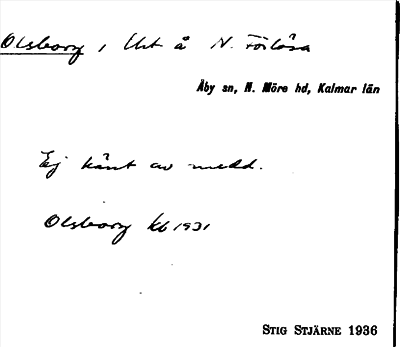 Olsborg, Urt å N. Förlösa
Åby sn, N. Möre hd, Kalmar län
Ej känt av medd.
Olsborg kb 1931
Stig Stjärne 1936